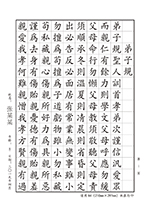 弟子規
弟子規聖人訓首孝弟次謹信汎愛眾
而親仁有餘力則學文父母呼應勿緩
父母命行勿懶父母教須敬聽父母責
須順承冬則溫夏則凊晨則省昏則定
出必告反必面居有常業無變事雖小
勿擅為苟擅為子道虧物雖小勿私藏
苟私藏親心傷親所好力為具親所惡
謹為去身有傷貽親憂德有傷貽親羞
親愛我孝何難親憎我孝方賢親有過
張某某